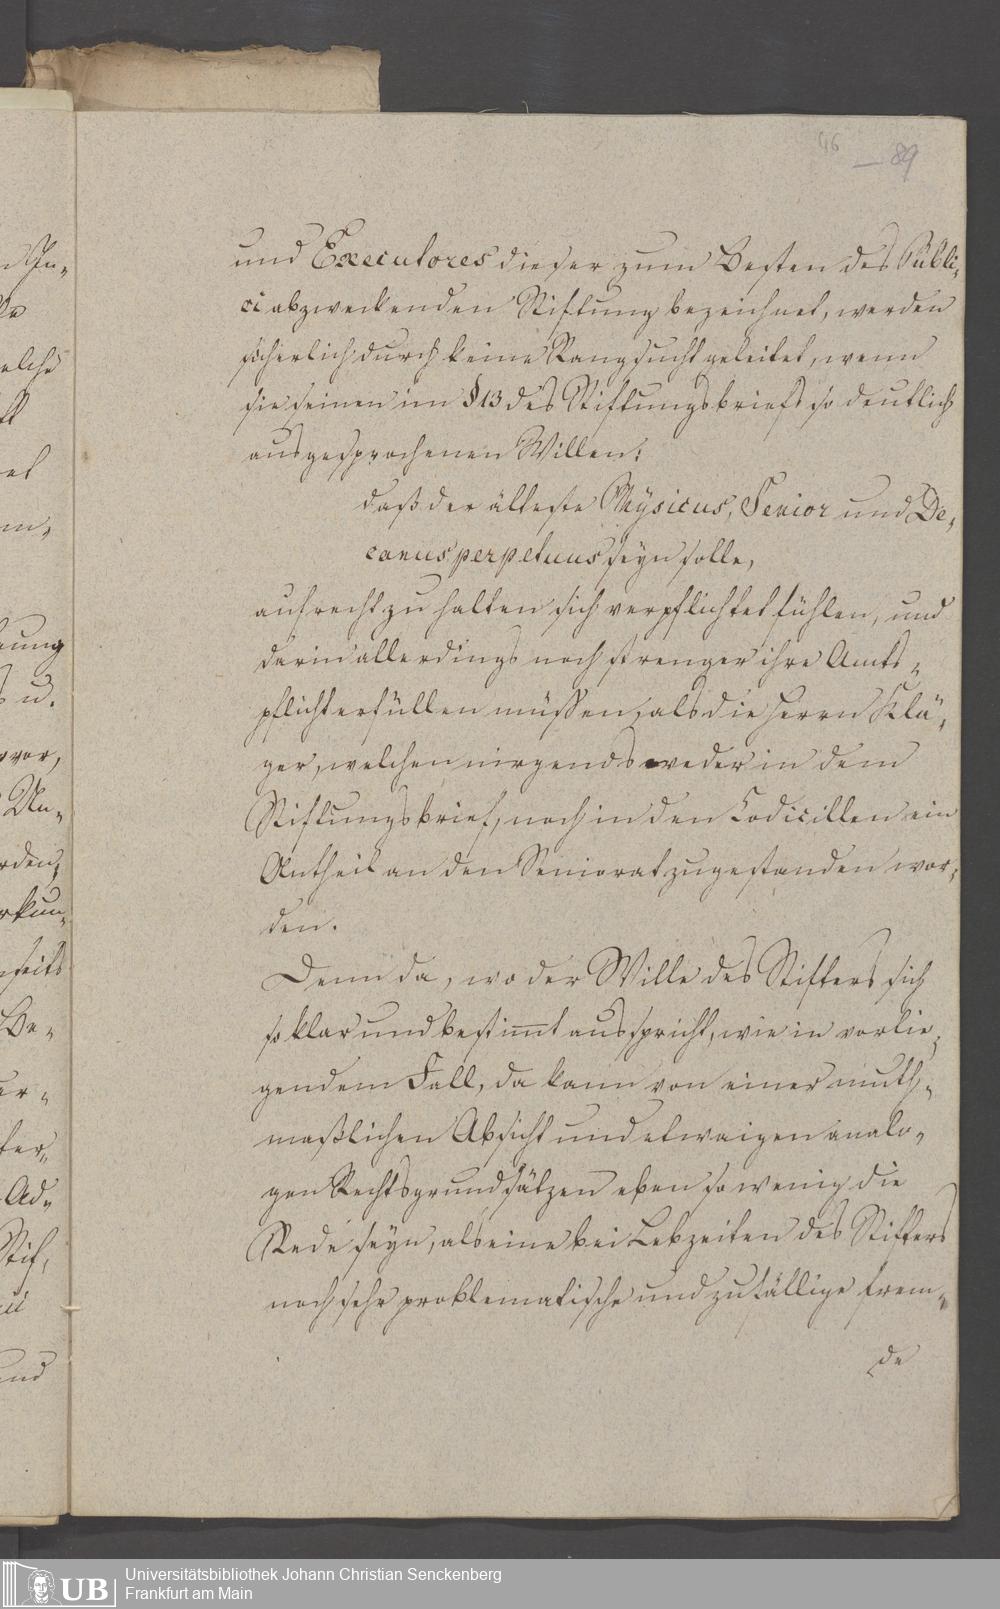 46
— 89
und Executores dieser zum Besten des Publi-
ci abzweckenden Stiftung bezeichnet, werden
sicherlich durch keine Rangsucht geleitet, wenn
sie seinen im § 13 des Stiftungsbriefs so deutlich
ausgesprochenen Willen:
daß der älteste Physicus, Senior und De-
canus perpetuus seyn solle,
aufrecht zu halten sich verpflichtet fühlen, und
darin allerdings noch strenger ihre Amts-
pflicht erfüllen müssen, als die Herrn Klä-
ger, welchen nirgends weder in dem
Stiftungsbrief, noch in den Codicillen ein
Antheil an den Seniorat zugestanden wor-
den.
Denn da, wo der Wille des Stifters sich
so klar und bestimt ausspricht, wie in vorlie-
gendem Fall, da kann von einer muth-
maßlichen Absicht und etwaigen analo-
gen Rechtsgrundsätzen eben so wenig die
Rede seyn, als eine bei Lebzeiten des Stifters
noch sehr problematische und zufällige frem-
de
UB
Universitätsbibliothek Johann Christian Senckenberg
Frankfurt am Main